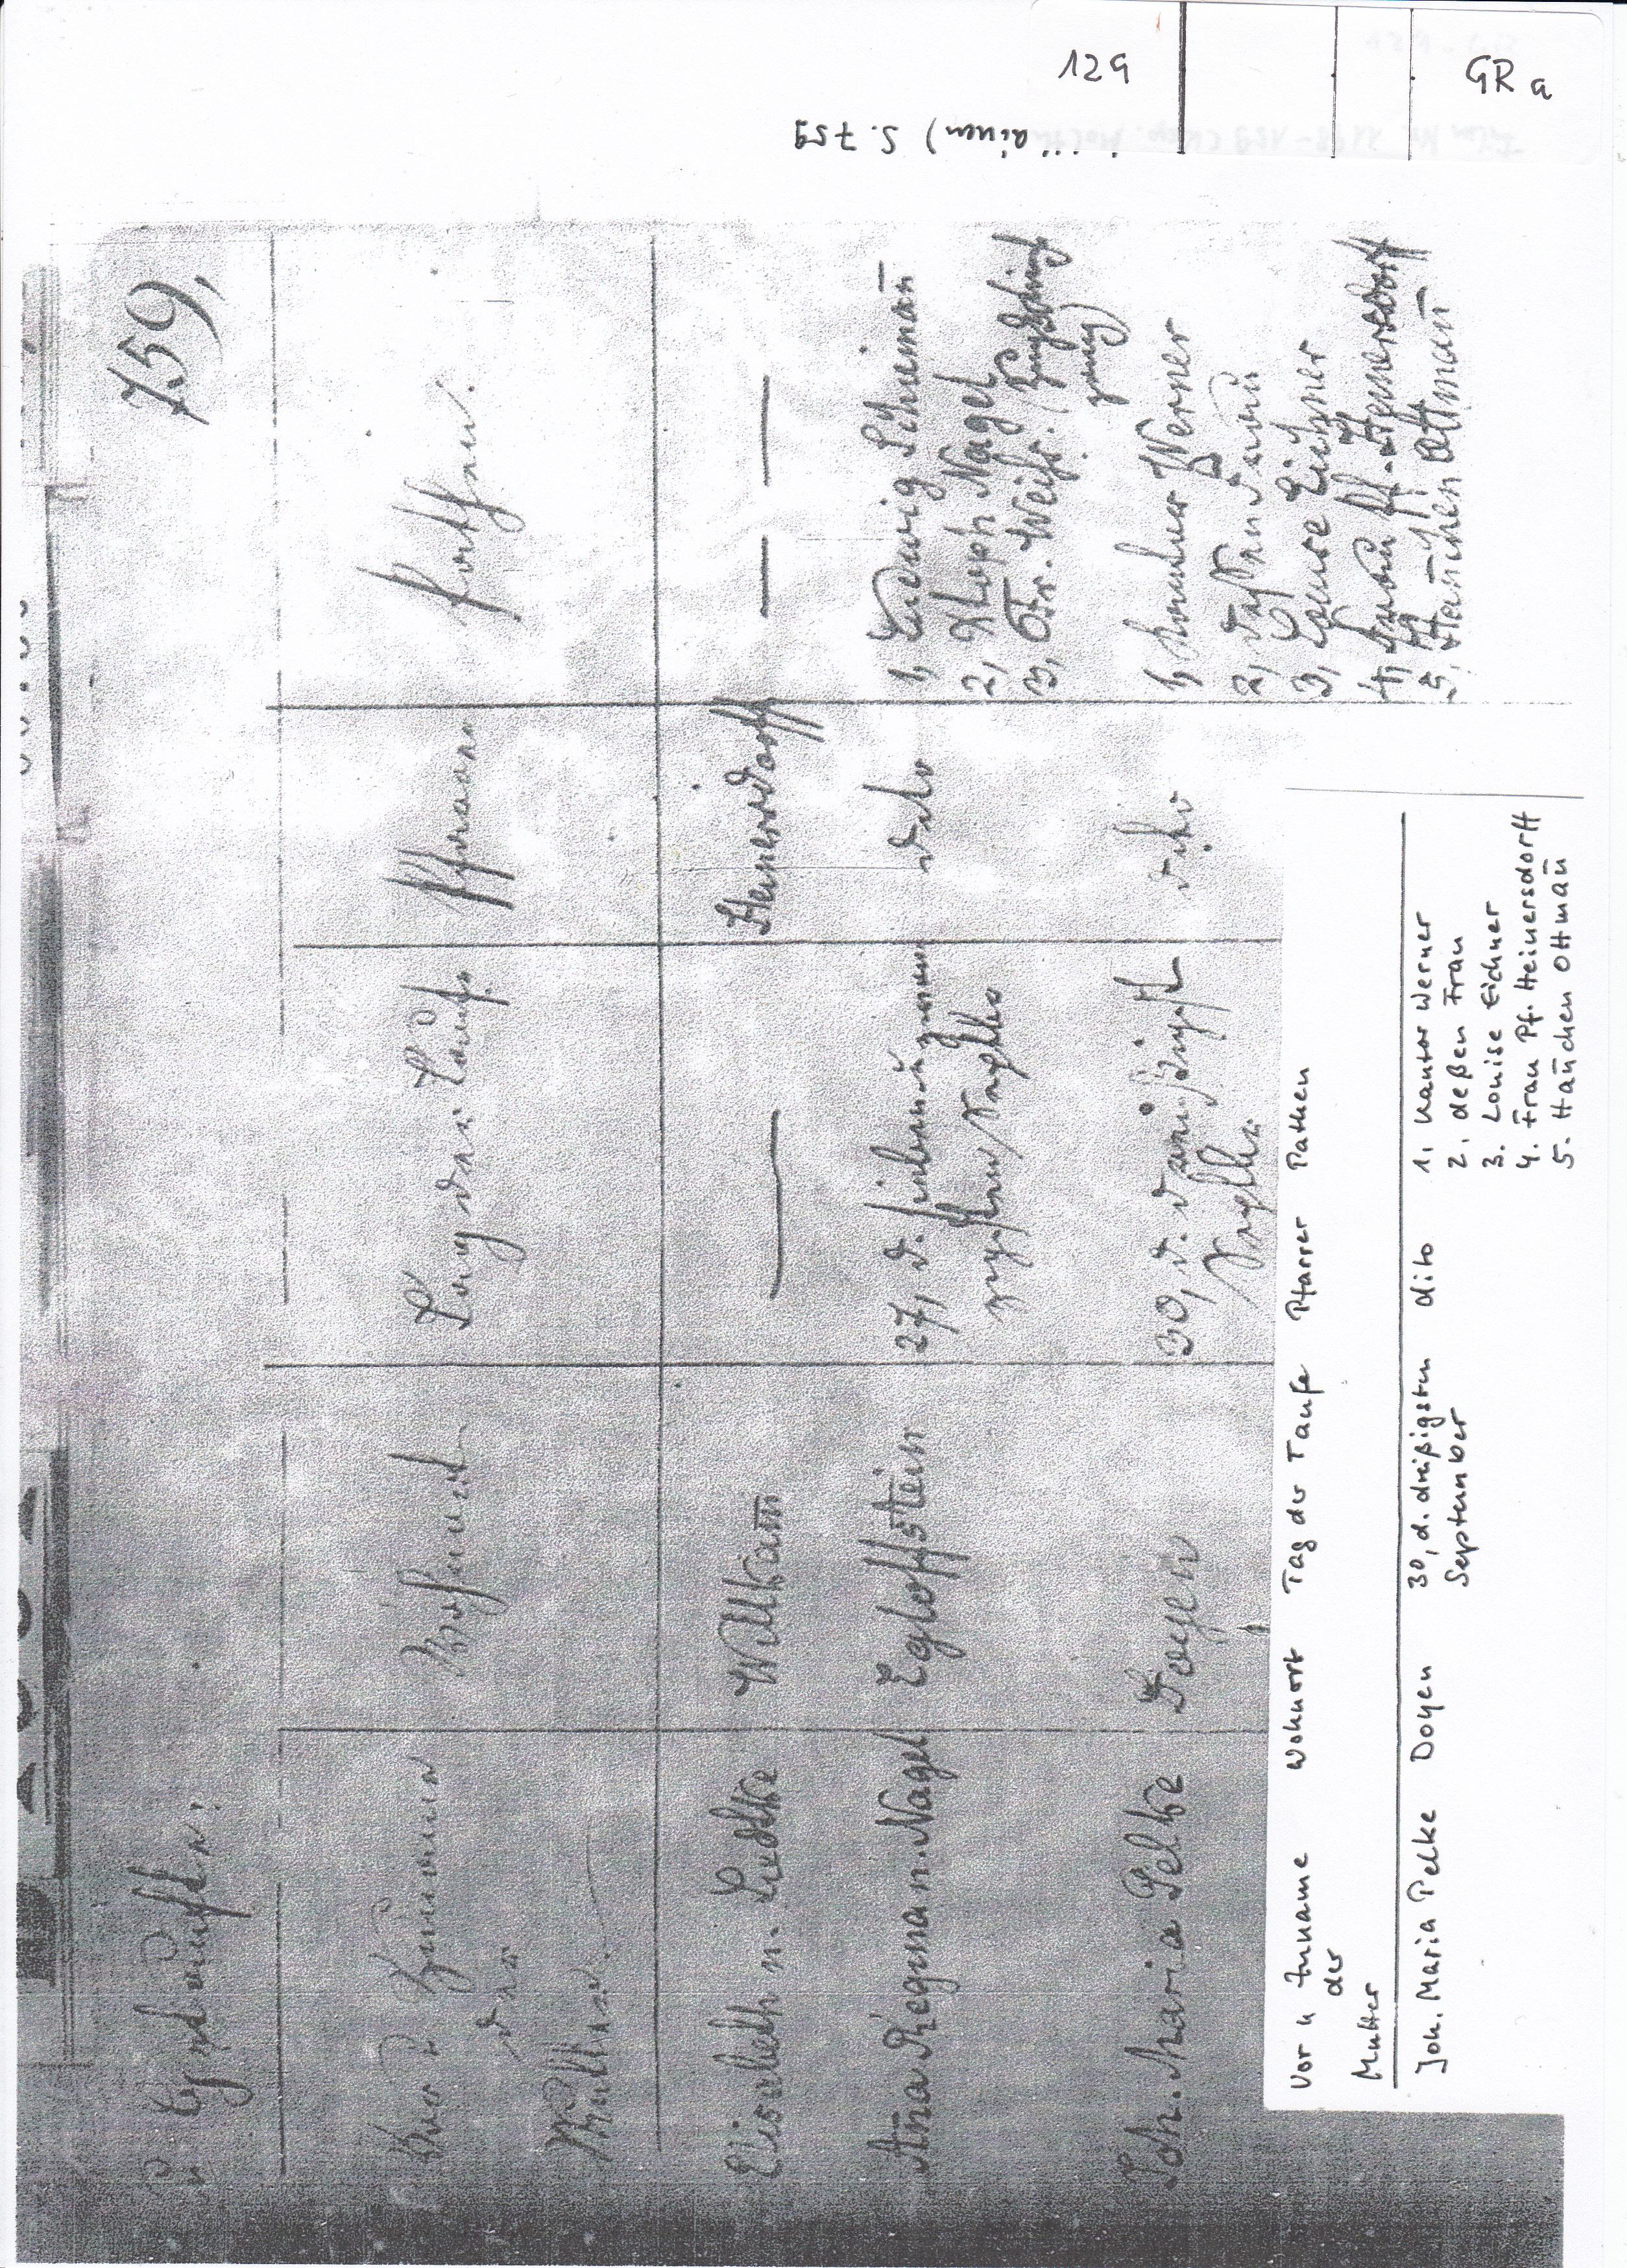 129
GRa
S. 759
759,
Getauften:
Vor u Zunamen
der
Mutter.
Wohnort
Tag der Taufe
Pfarrer
Pathen.
Elisabeth n. Ludtke
Willkam̄
Heinersdorff
An̄a Regina n. Nagel
Egloffstein
27, d. siebenund zwan
zigsten Septber
dito
1, Ludwig Scheiman̄
2, Xstoph Nagel
3, Fr. Weiss.
Joh. Maria Pelke
Doyen
30, d. dreißigst
Septber.
dito
1, Kantor Werner
2, deßen Frau
3, Louise Eichner
4, Frau Pf. Heinersdorff
5, Han̄chen Ottman̄
Vor u Zuname
der
Mutter
Wohnort
Tag der Taufe
Pfarrer
Pathen
Joh. Maria Pelke
Doyen
30, d. dreißigsten
September
dito
1, Kantor Werner
2. deßen Frau
3. Louise Eichner
4. Frau Pf. Heinersdorff
5. Han̄chen Ottman̄